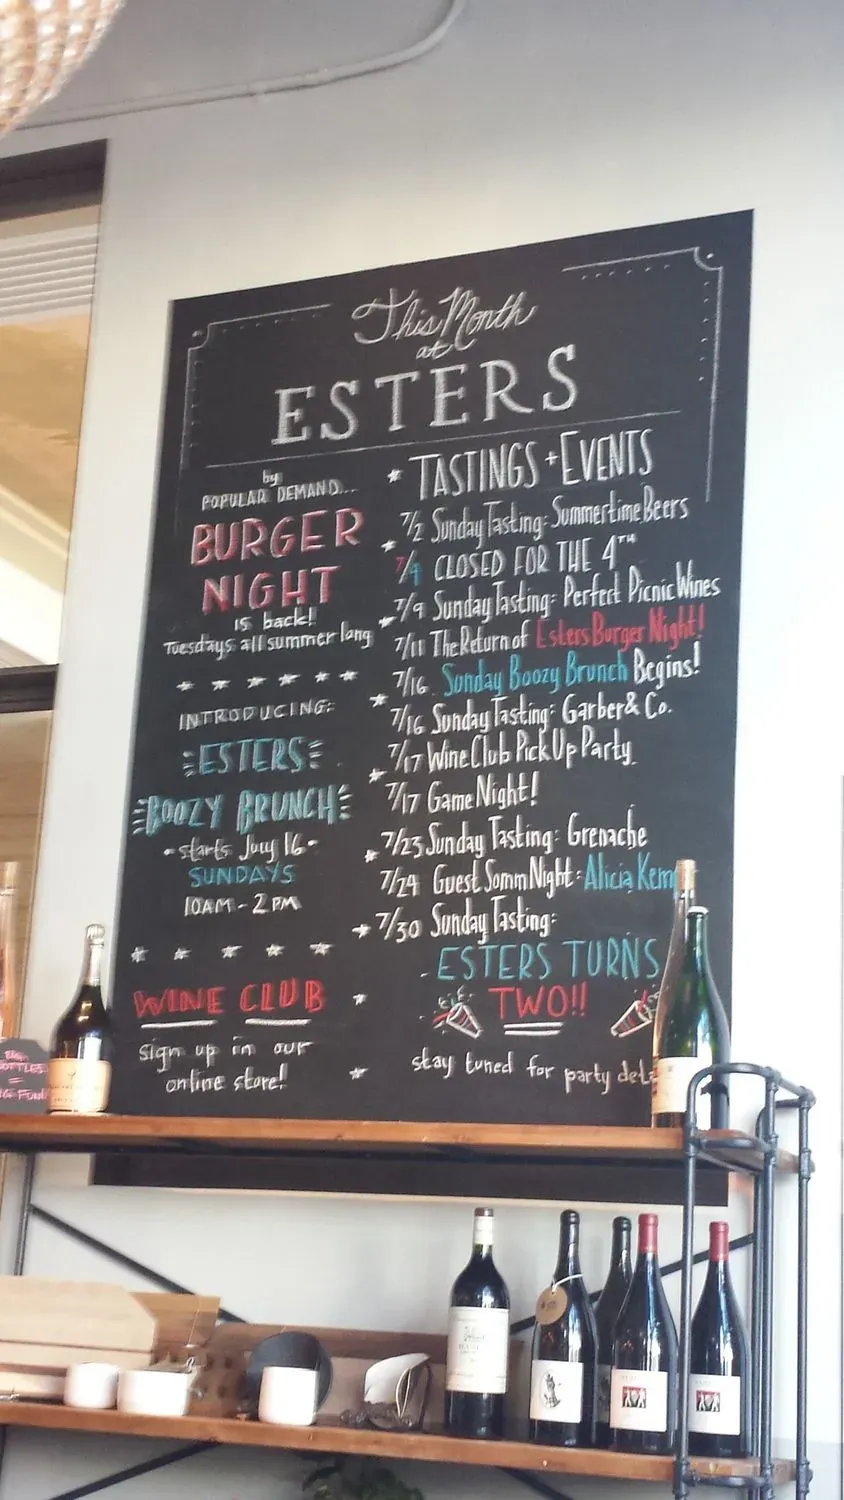 This Month
at
ESTERS
by
POPULAR DEMAND...
BURGER
NIGHT
is back!
Tuesdays all summer long
INTRODUCING:
ESTERS
BOOZY BRUNCH
- starts July 16 -
SUNDAYS
10AM - 2PM
WINE CLUB
sign up in our
online store!
TASTINGS + EVENTS
7/2 Sunday Tasting: Summertime Beers
7/4 CLOSED FOR THE 4TH
7/9 Sunday Tasting: Perfect Picnic Wines
7/11 The Return of Esters Burger Night!
7/16 Sunday Boozy Brunch Begins!
7/16 Sunday Tasting: Garber & Co.
7/17 Wine Club Pick Up Party
7/17 Game Night!
7/23 Sunday Tasting: Grenache
7/24 Guest Somm Night: Alicia Kem
7/30 Sunday Tasting:
ESTERS TURNS
TWO!!
stay tuned for party deta